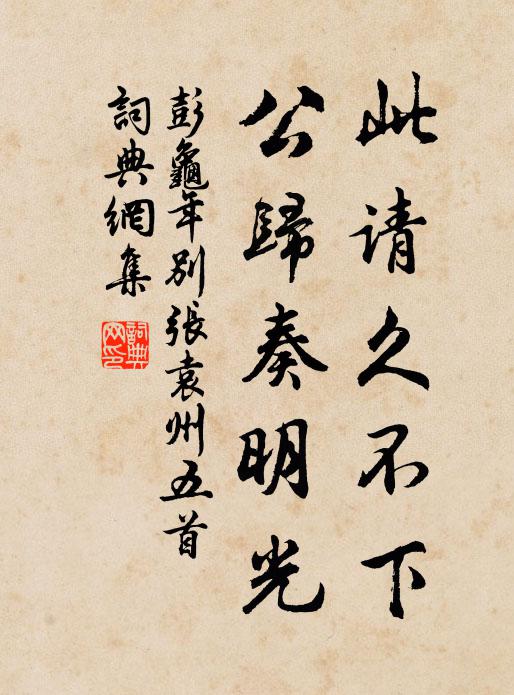 此请久不下
公歸奏明光
彭龜年別張袁州五首
詞典網集
詞典網印